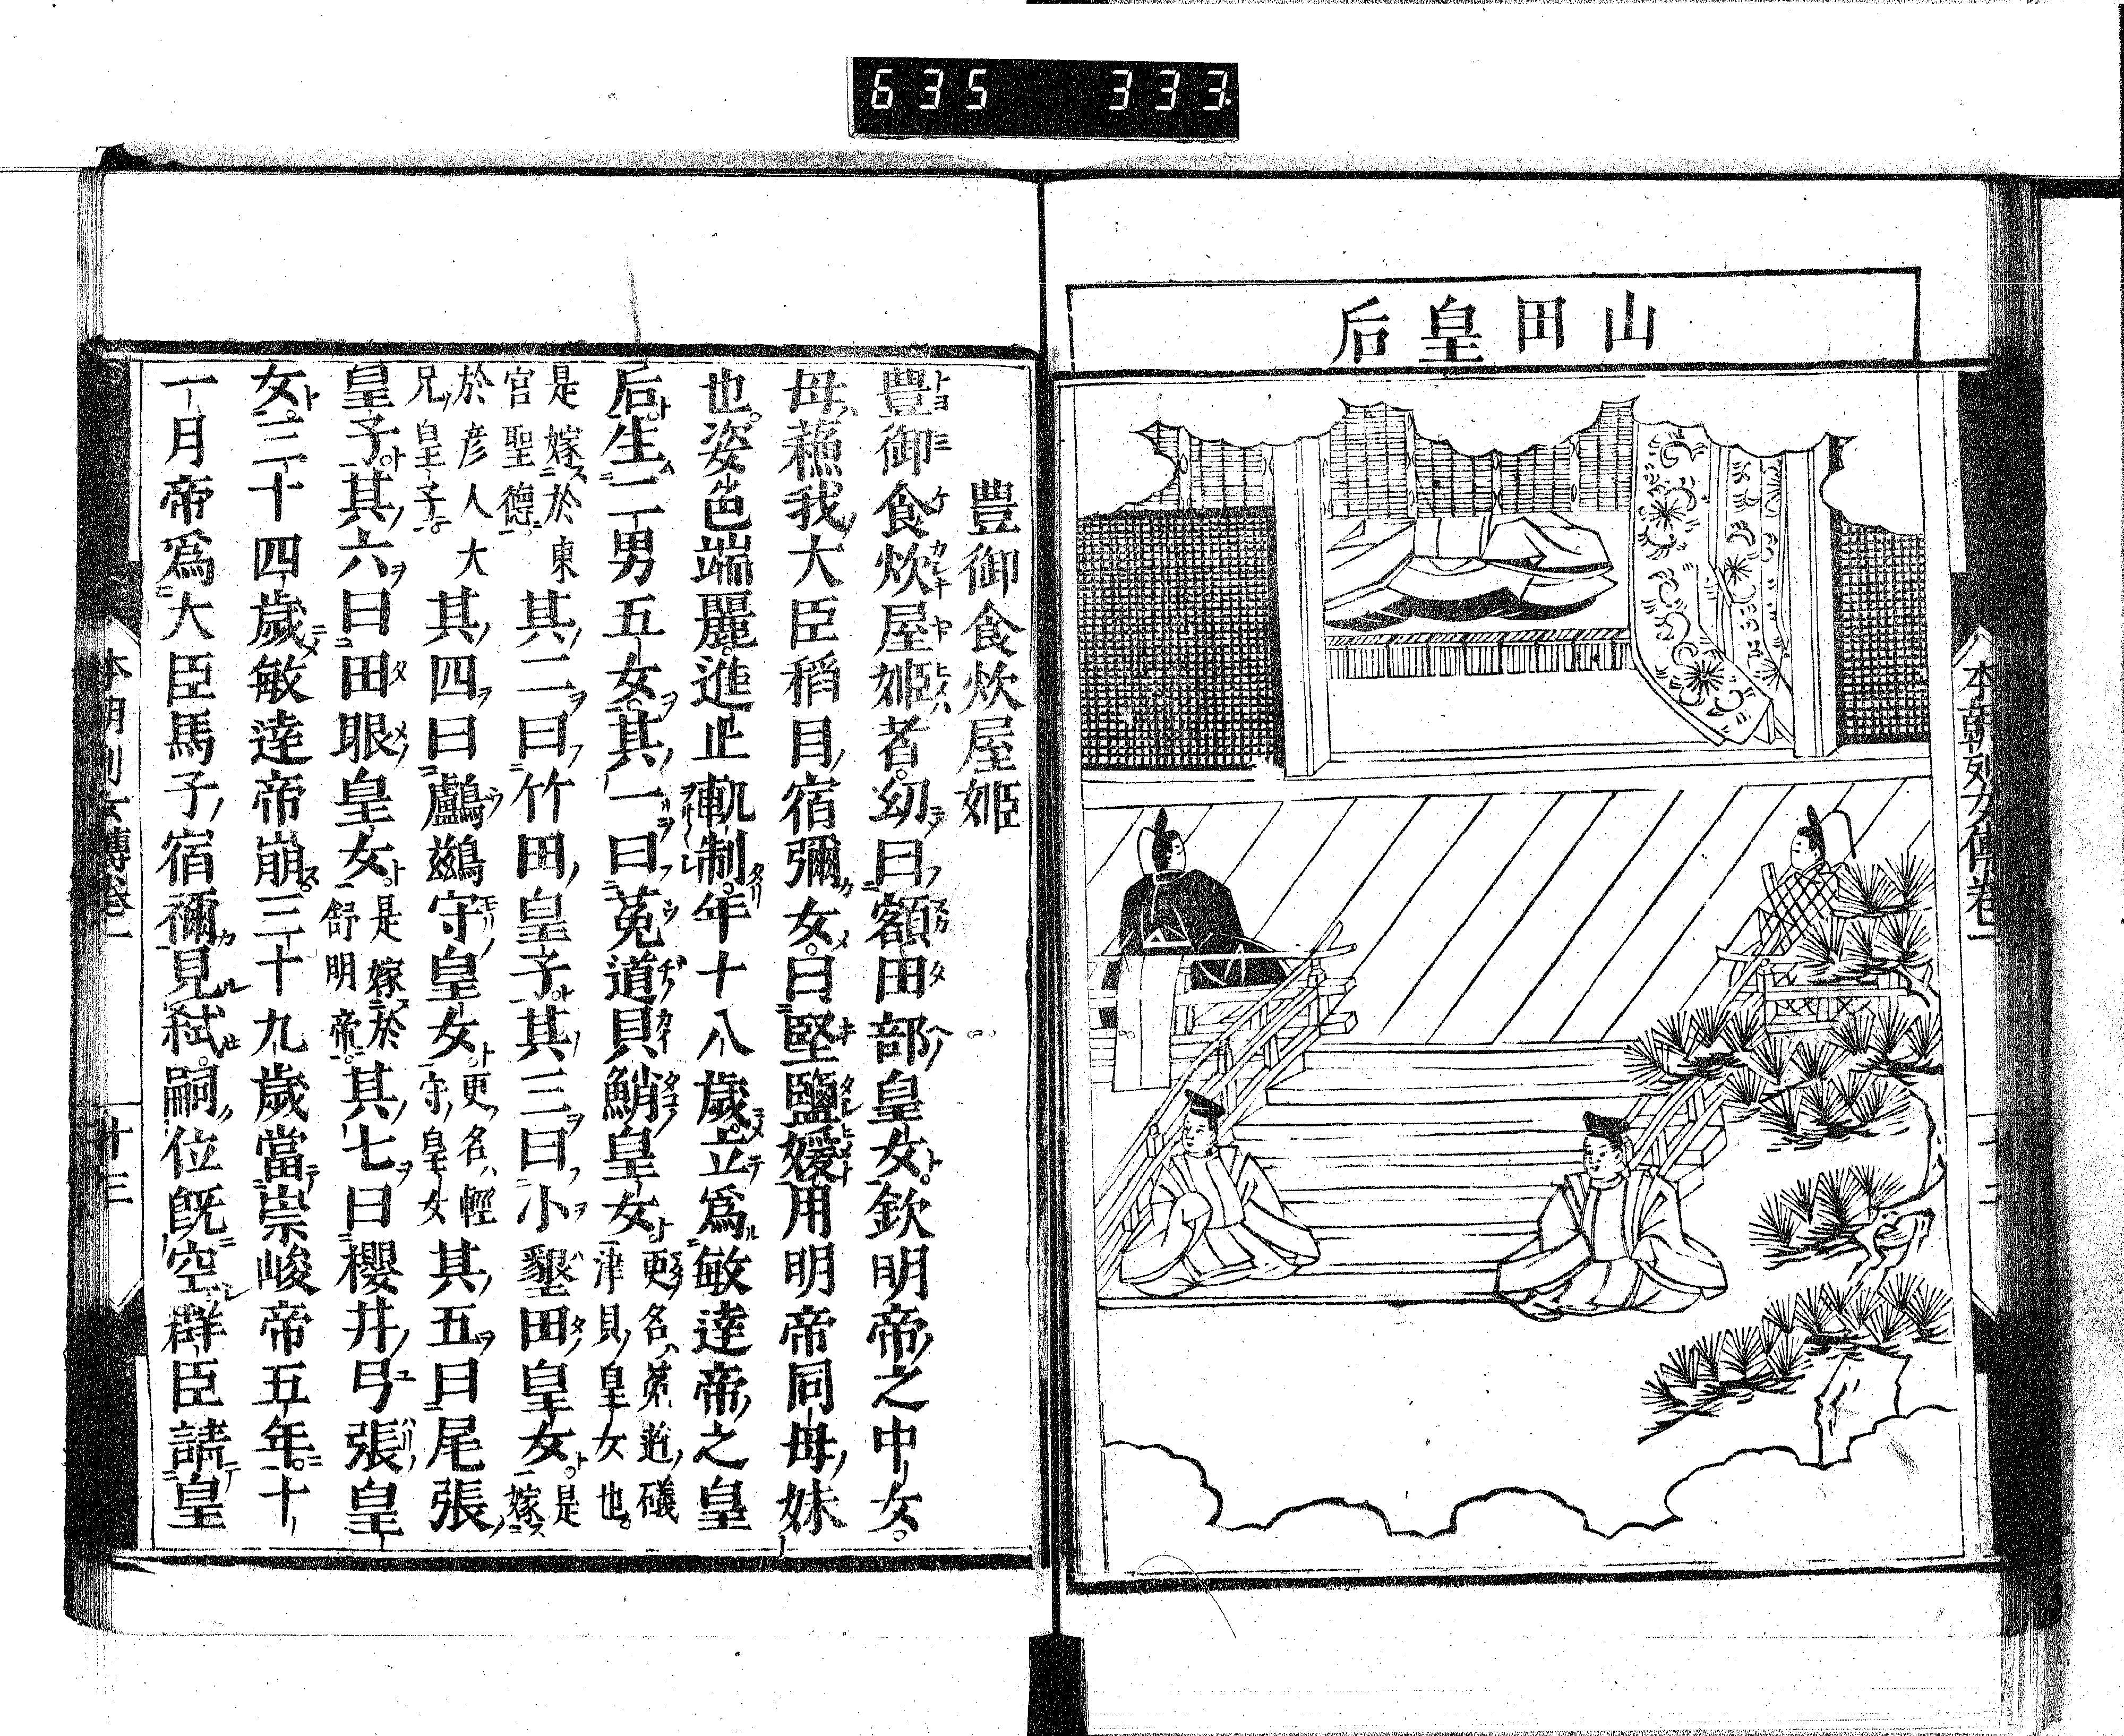 635 333
山田皇后
本朝列女傳卷一
豊御食炊屋姬
豊御食炊屋姬者。幼曰額田部皇女。欽明帝之中女。
母蘓我大臣稻目宿彌女。曰堅鹽媛。用明帝同母妹
也。姿色端麗。進止軌制。年十八歲。立爲敏達帝之皇
后。生二男五女。其一曰菟道貝鮹皇女。更名菟道磯津貝皇女也。
是嫁於東宮聖德。其二曰竹田皇子。其三曰小墾田皇女。是嫁
於彥人大兄皇子。其四曰鸕鷀守皇女。更名輕守皇女其五曰尾張
皇子。其六曰田眼皇女。是嫁於舒明帝。其七曰櫻井弓張皇
女。三十四歲。敏達帝崩。三十九歲。當崇峻帝五年。十
一月帝爲大臣馬子宿禰見弑。嗣位旣空。群臣請皇
本朝列女傳卷一 十三